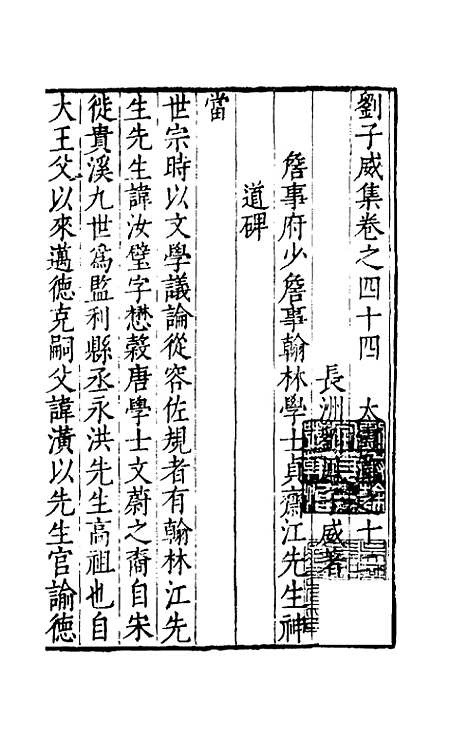 劉子威集卷之四十四　太
長洲　威著
詹事府少詹事翰林學士貞齋江先生神
道碑
當
世宗時以文學議論從容佐規者有翰林江先
生先生諱汝璧字懋穀唐學士文蔚之裔自宋
徙貴溪九世爲監利縣丞永洪先生高祖也自
大王父以來邁德克嗣父諱潢以先生官諭德